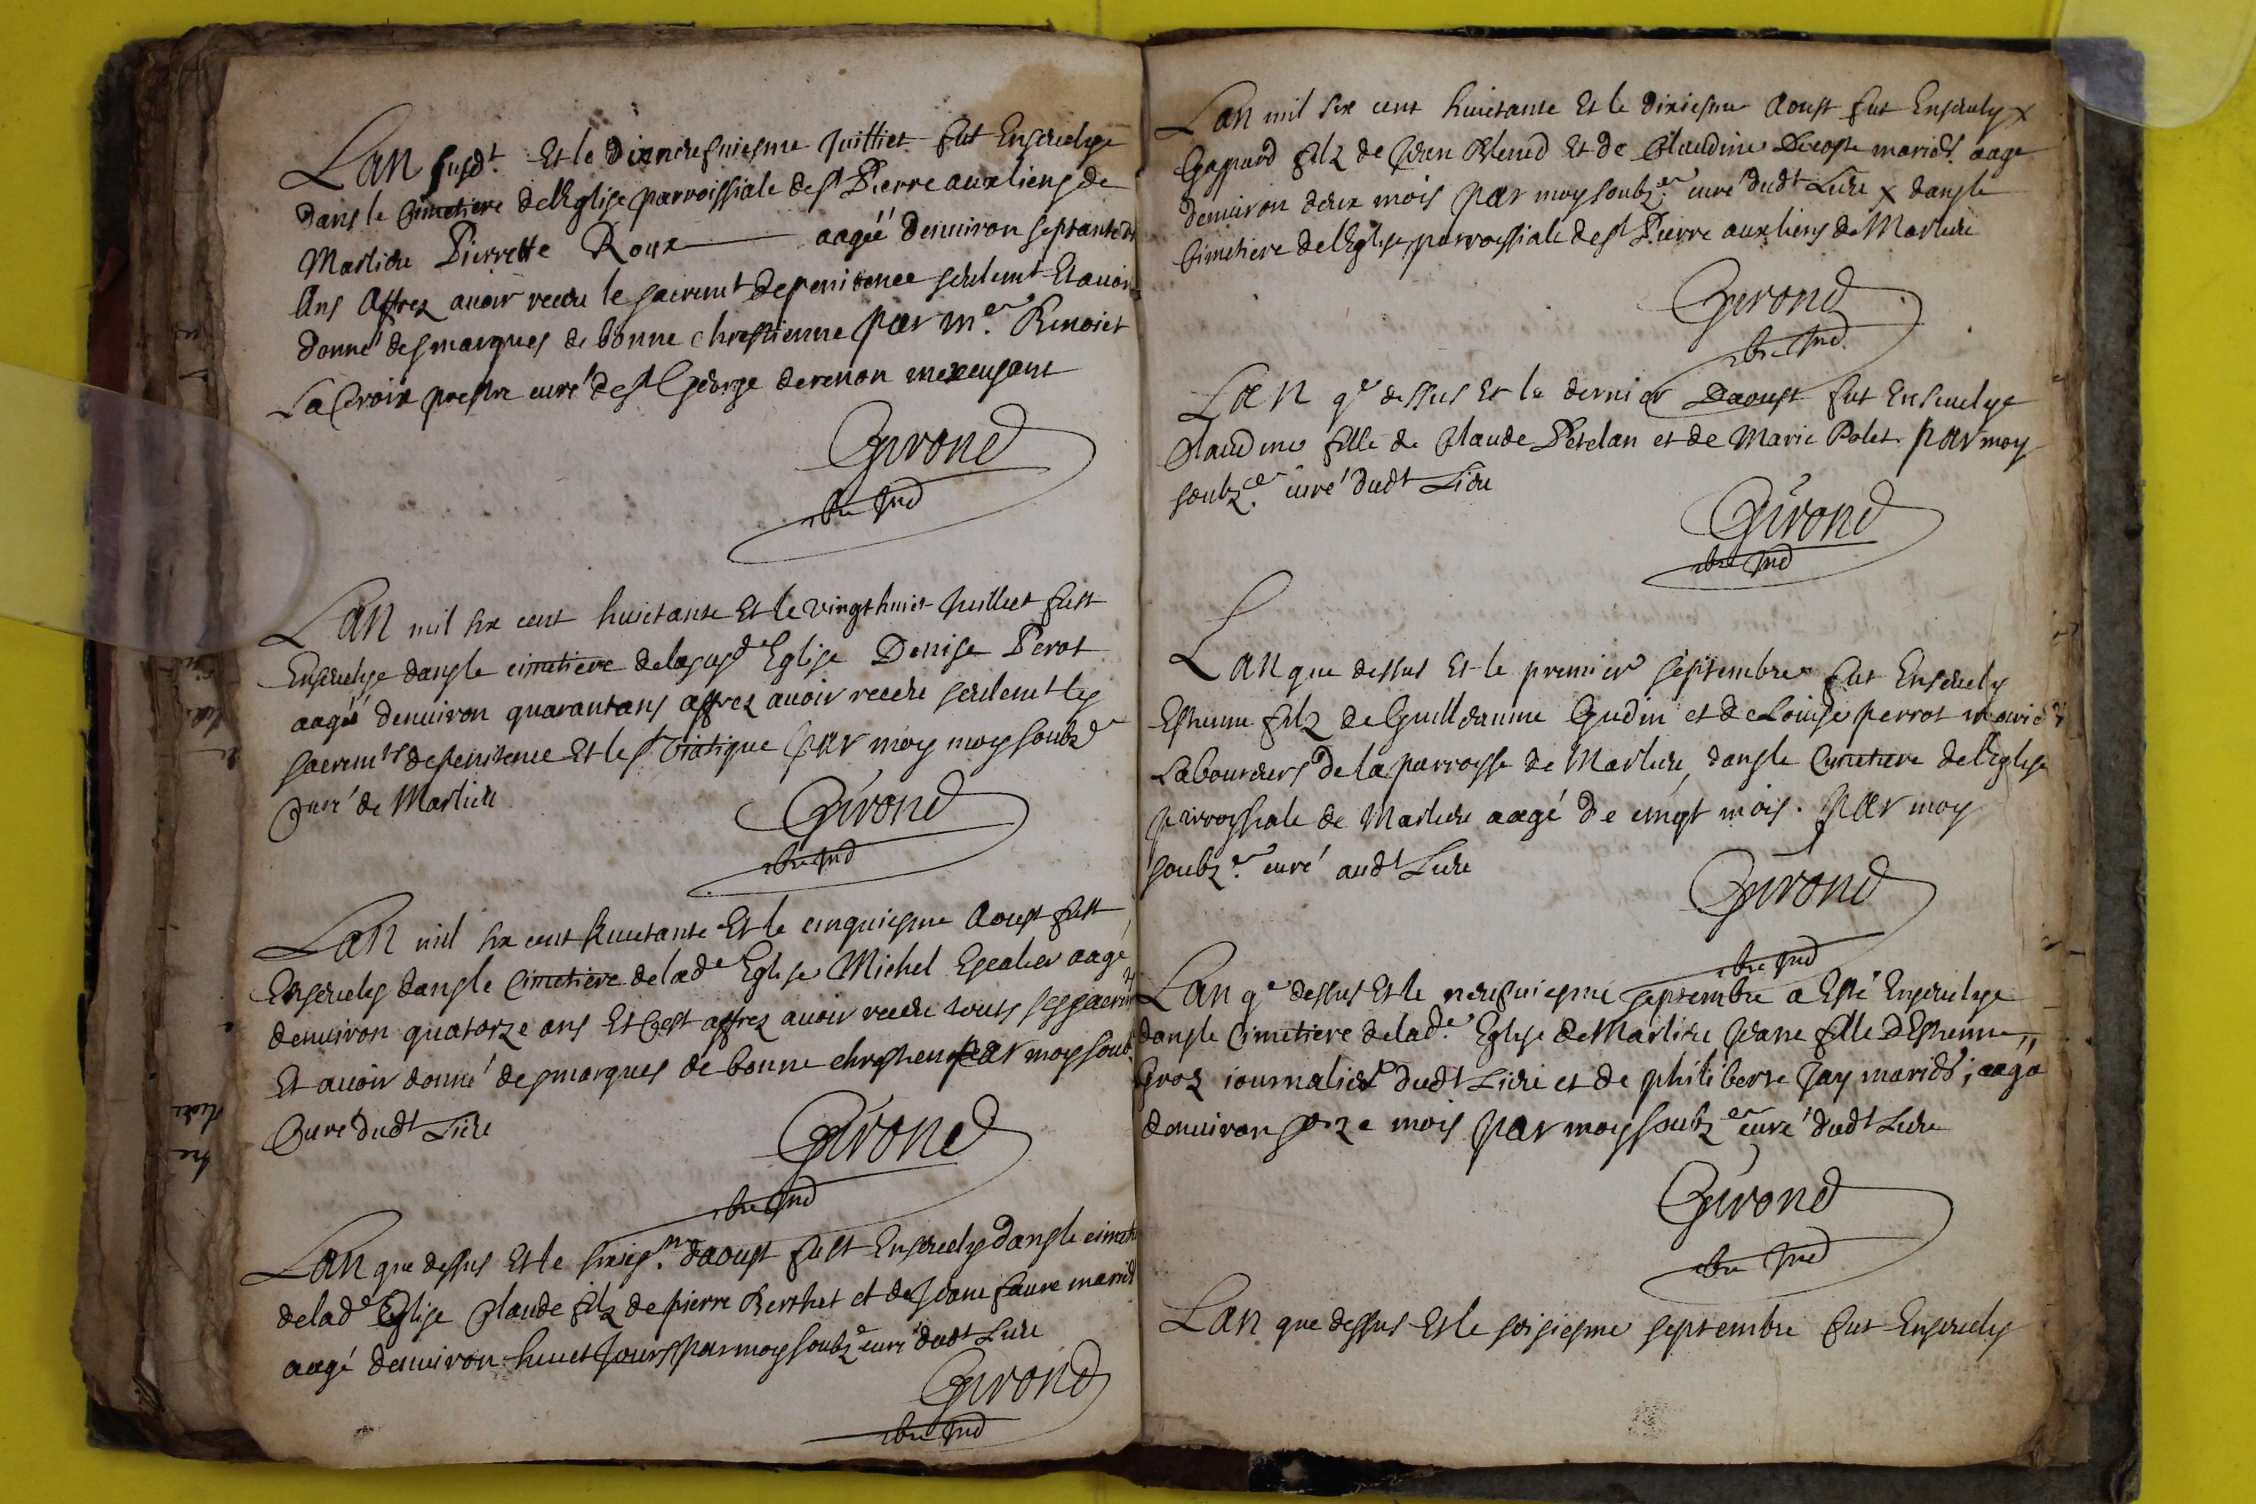 Lan susdt. Et le dixneufuiesme Juilliet fut Enseuelye
dans le Cimetiere de lEglise parroissiale de st Pierre aux liens de
Marlieu Pierrette Roux aagéé denuiron septante
Ans Affrez auoir receu le sacremt de penitence seulemt Et auoir
donné des marques de bonne chrestienne par mre. Benoiet
La Croix prestre curé de st George de renon mexcusant
Girond
Lan mil six cent huictante Et le vingt huict Juilliet fust
Enseuelye dans le cimetiere de la susde Eglise Denise Perot
aagéé denuiron quarantans affrez auoir receu seulemt les
sacremts de penitence Et le st Viatique par moy moy soubzé
Curé de Marlieu
Girond
Lan mil six cent huictante Et le cinquiesme Aoust fust
Enseuely dans le Cimetiere de lade Eglise Michel aagé
denuiron quatorze ans Et Cest affrez auoir receu touts ses sacremts
Et auoir donné des marques de bonne chrestien par moy soubz
Curé dudt Lieu
Girond
Lan que dessus Et le sixiesm. daoust fust Enseuely dans le cimeti
de lade Eglise Claude filz de pierre Berthet et de Jeane faure mariés
aagé denuiron huict Jours par moy soubzé curé dudt Lieu
Girond
Lan mil six cent huictante Et le dixiesme Aoust fut Enseuely x
Gaspard filz de Jean Blend Et de Claudine mariés aagé
denuiron deux mois par moy soubzer curé dudt Lieu x dans le
Cimetiere de lEglise parrossiale de st Pierre aux liens de Marlieu
Girond
Lan qe dessus Et le dernier Daoust fut Enseuelye
Claudine fille de Claude Petelan et de Marie Polet. par moy
soubzé. curé dudt Lieu
Girond
Lan que dessus Et le premier septembre fut Enseuely
Estienne filz de Guilleaume Gudin et de Louise perrot mariés
Laboureurs de la parroysse de Marlieu, dans le Cimetiere de lEglise
parroyssiale de Marlieu aagé de cinqt mois. par moy
soubzé. curé audt Lieu
Girond
Lan qe dessus Et le neufuiesme septembre a Esté Enseuelye
dans le Cimetiere de lade. Eglise de Marlieu Jeane fille dEstienne
Groz iournalier dudt Lieu et de philiberte Jay mariés; aagé
denuiron mois par moy soubzé curé dudt Lieu
Girond
Lan que dessus Et le seisiesme septembre fut Enseuely